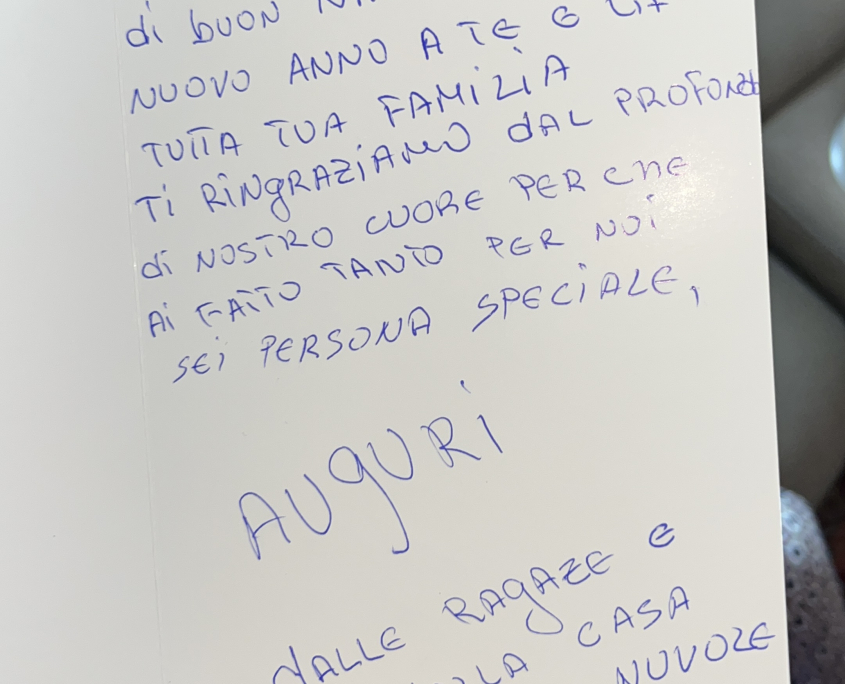 di buon
NUOVO ANNO A TE E
TUTTA TUA FAMIZIA
Ti RiNgRAZiAMO dAL PROFONdo
di NOSTRO CUORE PER CHE
Ai FATTO TANTO PER NOi
SEi PERSONA SPECiALE,
AUgURi
dALLE RAgAZE E
CASA
NUVOLE